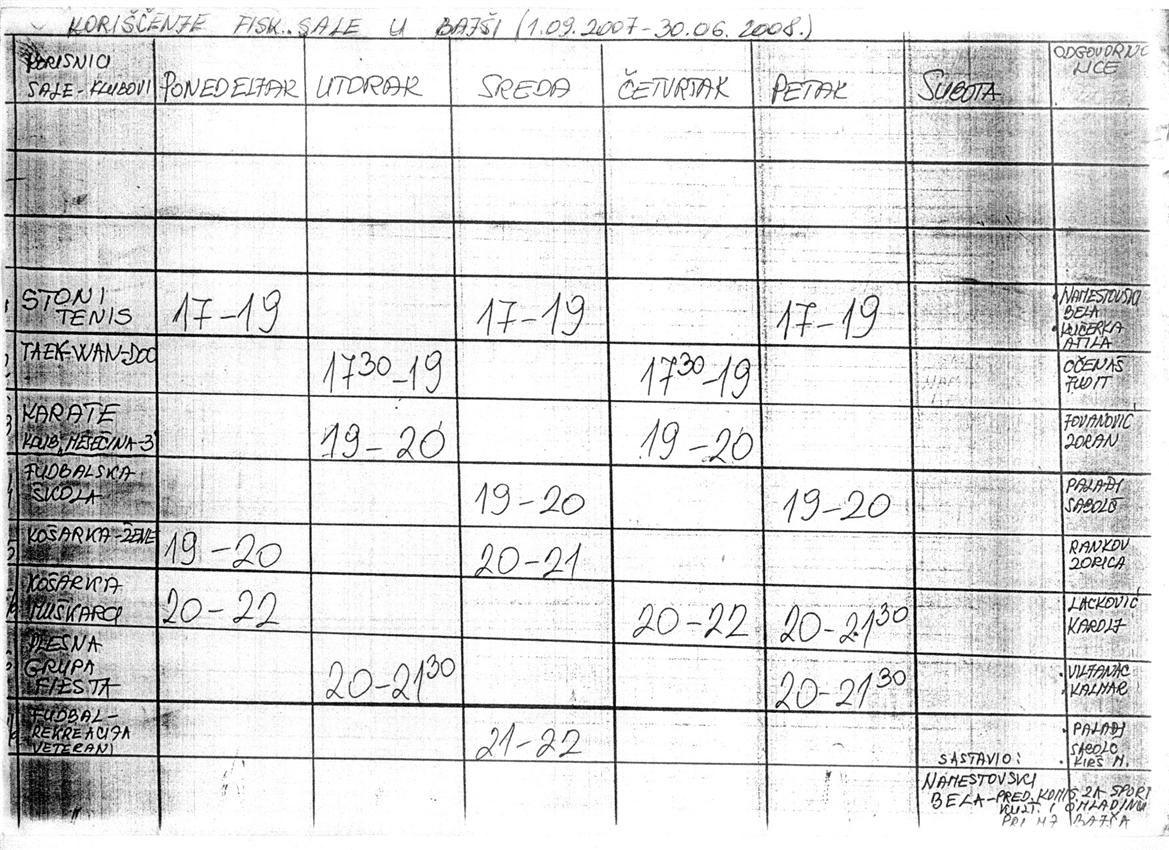 KORIŠČENJE FISK. SALE U BAJŠI (1.09.2007-30.06.2008.)
KORISNICI SALE-KLUBOVI PONEDELJAK UTORAK SREDA ČETVRTAK PETAK SUBOTA ODGOVORNO LICE
STONI TENIS 17-19 17-19 17-19 NAMESTOVSKI BELA KUČERKA ATILA
TAEK-WAN-DOO 17³⁰-19 17³⁰-19 OČENAŠ JUDIT
KARATE KLUB "MESEČINA-3" 19-20 19-20 JOVANOVIĆ ZORAN
FUDBALSKA ŠKOLA 19-20 19-20 PALAĐI SABOLČ
KOŠARKA-ŽENE 19-20 20-21 RANKOV ZORICA
KOŠARKA MUŠKARCI 20-22 20-22 20-21³⁰ LACKOVIĆ KAROLJ
PLESNA GRUPA FIESTA 20-21³⁰ 20-21³⁰ KALMAR
FUDBAL-REKREACIJA VETERANI 21-22 PALAĐI SABOLČ KIRŠ M.
SASTAVIO:
NAMESTOVSKI
BELA-PRED. KOMIS ZA SPORT
KULT. I OMLADINU
PRI MZ BAJŠA